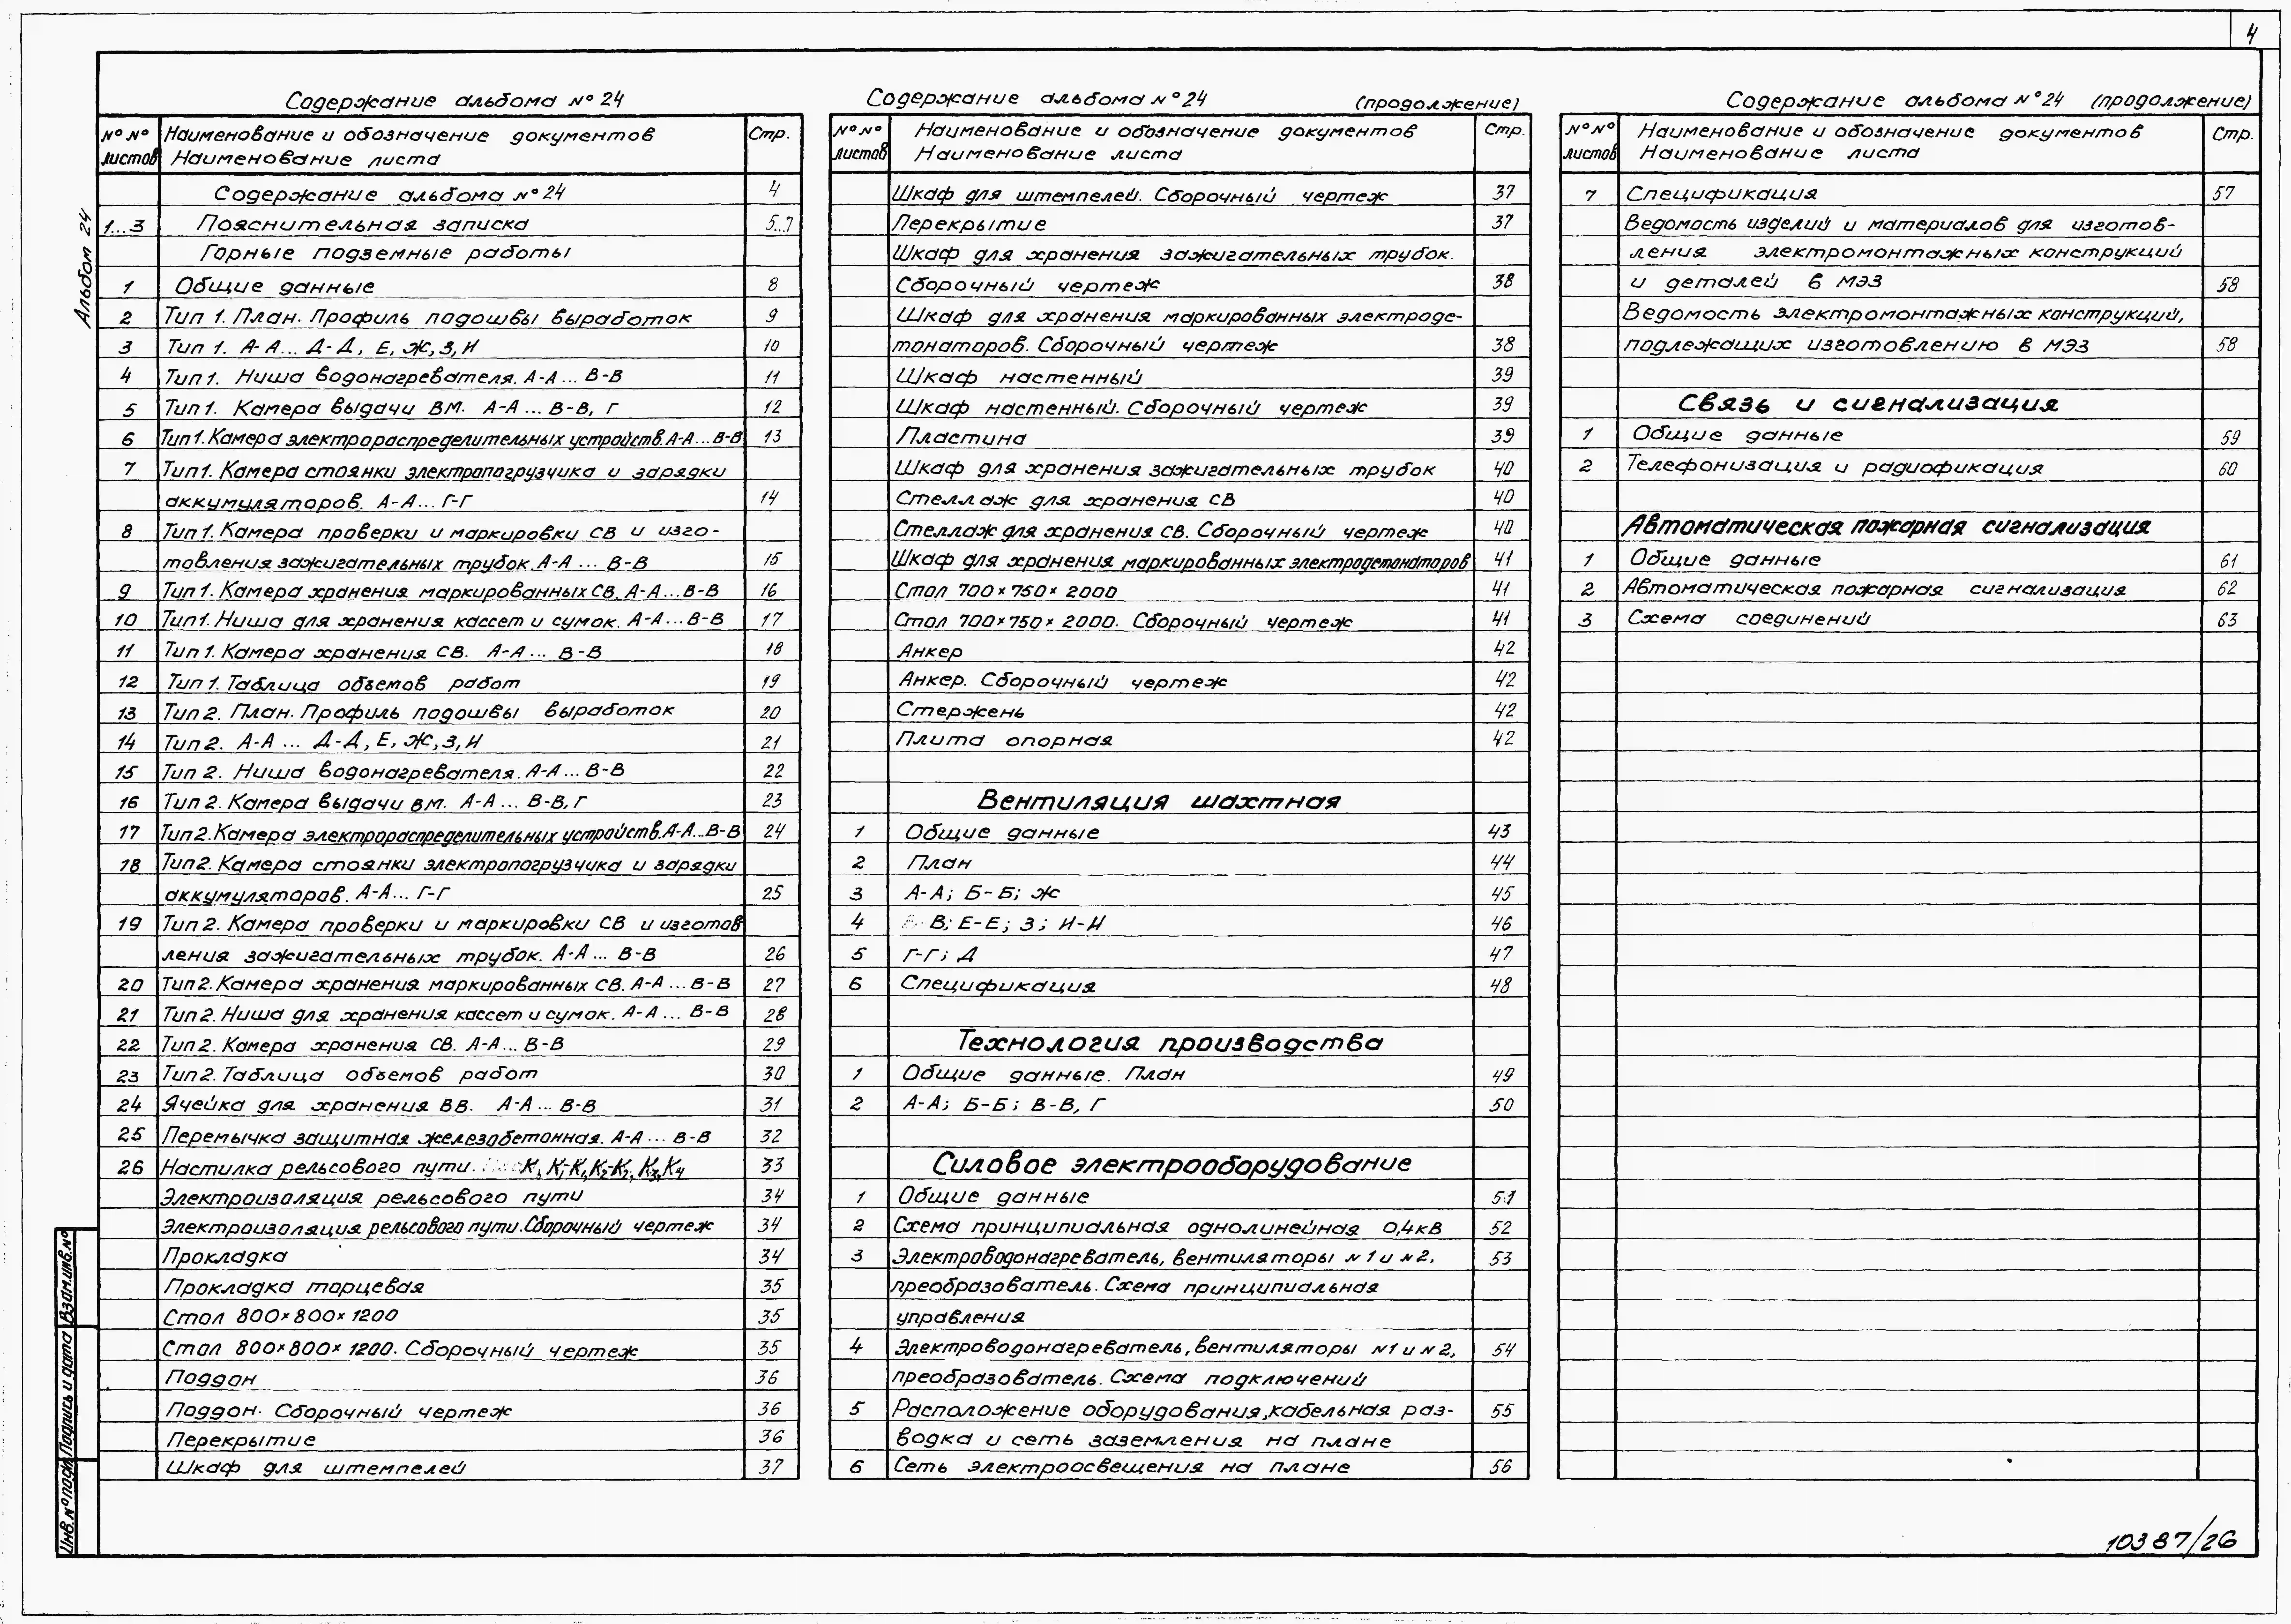 4
Альбом 24
Содержание альбома №24
№№ листов Наименование и обозначение документов Наименование листа Стр.
Содержание альбома №24 4
1...3 Пояснительная записка 5...7
Горные подземные работы
1 Общие данные 8
2 Тип 1. План. Профиль подошвы выработок 9
3 Тип 1. А-А... Д-Д, Е, Ж, З, И 10
4 Тип 1. Ниша водонагревателя. А-А ... В-В 11
5 Тип 1. Камера выдачи ВМ. А-А ... В-В, Г 12
6 Тип 1. Камера электрораспределительных устройств. А-А...В-В 13
7 Тип 1. Камера стоянки электропогрузчика и зарядки
аккумуляторов. А-А... Г-Г 14
8 Тип 1. Камера проверки и маркировки СВ и изго-
товления зажигательных трубок. А-А ... В-В 15
9 Тип 1. Камера хранения маркированных СВ. А-А...В-В 16
10 Тип 1. Ниша для хранения кассет и сумок. А-А...В-В 17
11 Тип 1. Камера хранения СВ. А-А... В-В 18
12 Тип 1. Таблица объемов работ 19
13 Тип 2. План. Профиль подошвы выработок 20
14 Тип 2. А-А ... Д-Д, Е, Ж, З, И 21
15 Тип 2. Ниша водонагревателя. А-А ... В-В 22
16 Тип 2. Камера выдачи ВМ. А-А ... В-В, Г 23
17 Тип 2. Камера электрораспределительных устройств. А-А...В-В 24
18 Тип 2. Камера стоянки электропогрузчика и зарядки
аккумуляторов. А-А... Г-Г 25
19 Тип 2. Камера проверки и маркировки СВ и изготов
ления зажигательных трубок. А-А ... В-В 26
20 Тип 2. Камера хранения маркированных СВ. А-А ... В-В 27
21 Тип 2. Ниша для хранения кассет и сумок. А-А ... В-В 28
22 Тип 2. Камера хранения СВ. А-А... В-В 29
23 Тип 2. Таблица объемов работ 30
24 Ячейка для хранения ВВ. А-А ... В-В 31
25 Перемычка защитная железобетонная. А-А ... В-В 32
26 Настилка рельсового пути. К, К₁-К₁, К₂-К₂, К₃, К₄ 33
Электроизоляция рельсового пути 34
Электроизоляция рельсового пути. Сборочный чертеж 34
Прокладка 34
Прокладка торцевая 35
Стол 800×800×1200 35
Стол 800×800×1200. Сборочный чертеж 35
Поддон 36
Поддон. Сборочный чертеж 36
Перекрытие 36
Шкаф для штемпелей 37
Содержание альбома №24 (продолжение)
№№ листов Наименование и обозначение документов Наименование листа Стр.
Шкаф для штемпелей. Сборочный чертеж 37
Перекрытие 37
Шкаф для хранения зажигательных трубок.
Сборочный чертеж 38
Шкаф для хранения маркированных электроде-
тонаторов. Сборочный чертеж 38
Шкаф настенный 39
Шкаф настенный. Сборочный чертеж 39
Пластина 39
Шкаф для хранения зажигательных трубок 40
Стеллаж для хранения СВ 40
Стеллаж для хранения СВ. Сборочный чертеж 40
Шкаф для хранения маркированных электродетонаторов 41
Стол 700×750×2000 41
Стол 700×750×2000. Сборочный чертеж 41
Анкер 42
Анкер. Сборочный чертеж 42
Стержень 42
Плита опорная 42
Вентиляция шахтная
1 Общие данные 43
2 План 44
3 А-А; Б-Б; Ж 45
4 В; Е-Е; З; И-И 46
5 Г-Г; Д 47
6 Спецификация 48
Технология производства
1 Общие данные. План 49
2 А-А; Б-Б; В-В, Г 50
Силовое электрооборудование
1 Общие данные 51
2 Схема принципиальная однолинейная 0,4кВ 52
3 Электроводонагреватель, вентиляторы №1 и №2, 53
преобразователь. Схема принципиальная
управления
4 Электроводонагреватель, вентиляторы №1 и №2, 54
преобразователь. Схема подключений
5 Расположение оборудования, кабельная раз- 55
водка и сеть заземления на плане
6 Сеть электроосвещения на плане 56
Содержание альбома №24 (продолжение)
№№ листов Наименование и обозначение документов Наименование листа Стр.
7 Спецификация 57
Ведомость изделий и материалов для изготов-
ления электромонтажных конструкций
и деталей в МЭЗ 58
Ведомость электромонтажных конструкций,
подлежащих изготовлению в МЭЗ 58
Связь и сигнализация
1 Общие данные 59
2 Телефонизация и радиофикация 60
Автоматическая пожарная сигнализация
1 Общие данные 61
2 Автоматическая пожарная сигнализация 62
3 Схема соединений 63
Инв.№подл Подпись и дата Взам.инв.№
10387/26